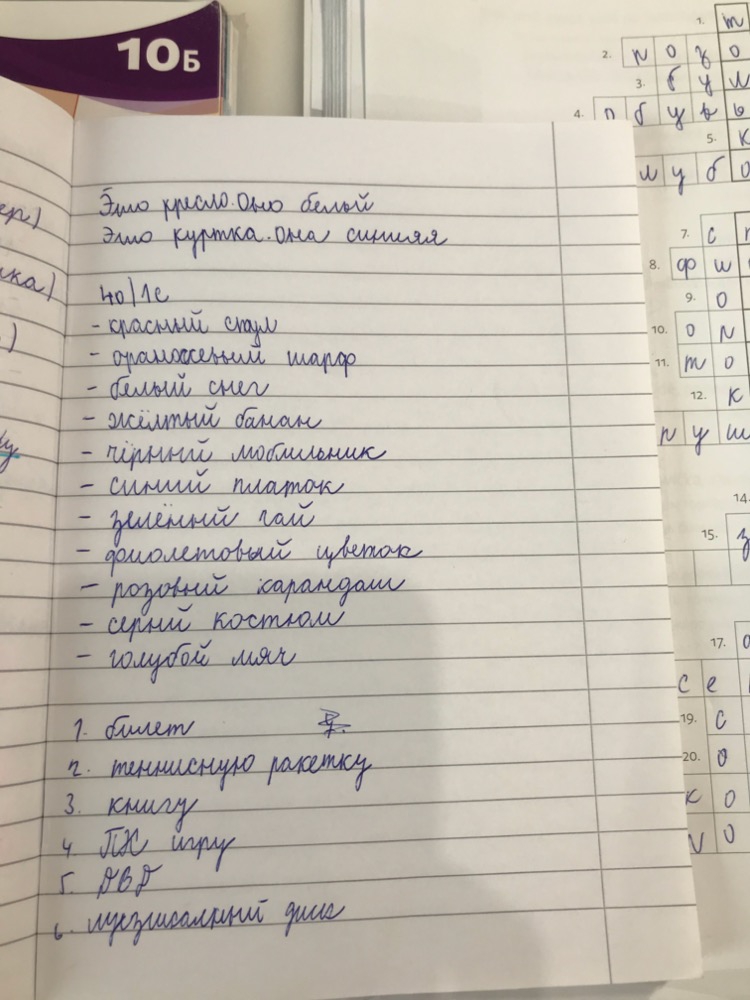 10Б
ер)
ика)
.)
у
Это кресло. Оно белый
Это куртка. Она синяя
40/1c
- красный стул
- оранжевый шарф
- белый снег
- жёлтый банан
- чёрный мобильник
- синий платок
- зелённый чай
- фиолетовый цветок
- розовый карандаш
- серый костюм
- голубой мяч
1. билет
2. теннисную ракетку
3. книгу
4. ПК игру
5. ДВД
6. музыкалный диск
1. т
2. п о г о
3. б у л
4. о б у в ь
5. к
л у б о
7. с п
8. ф и
9. о
10. о п
11. т о
12. к
р у ш
14.
15. з
17. о
с е
19. с
20. о
к о
о